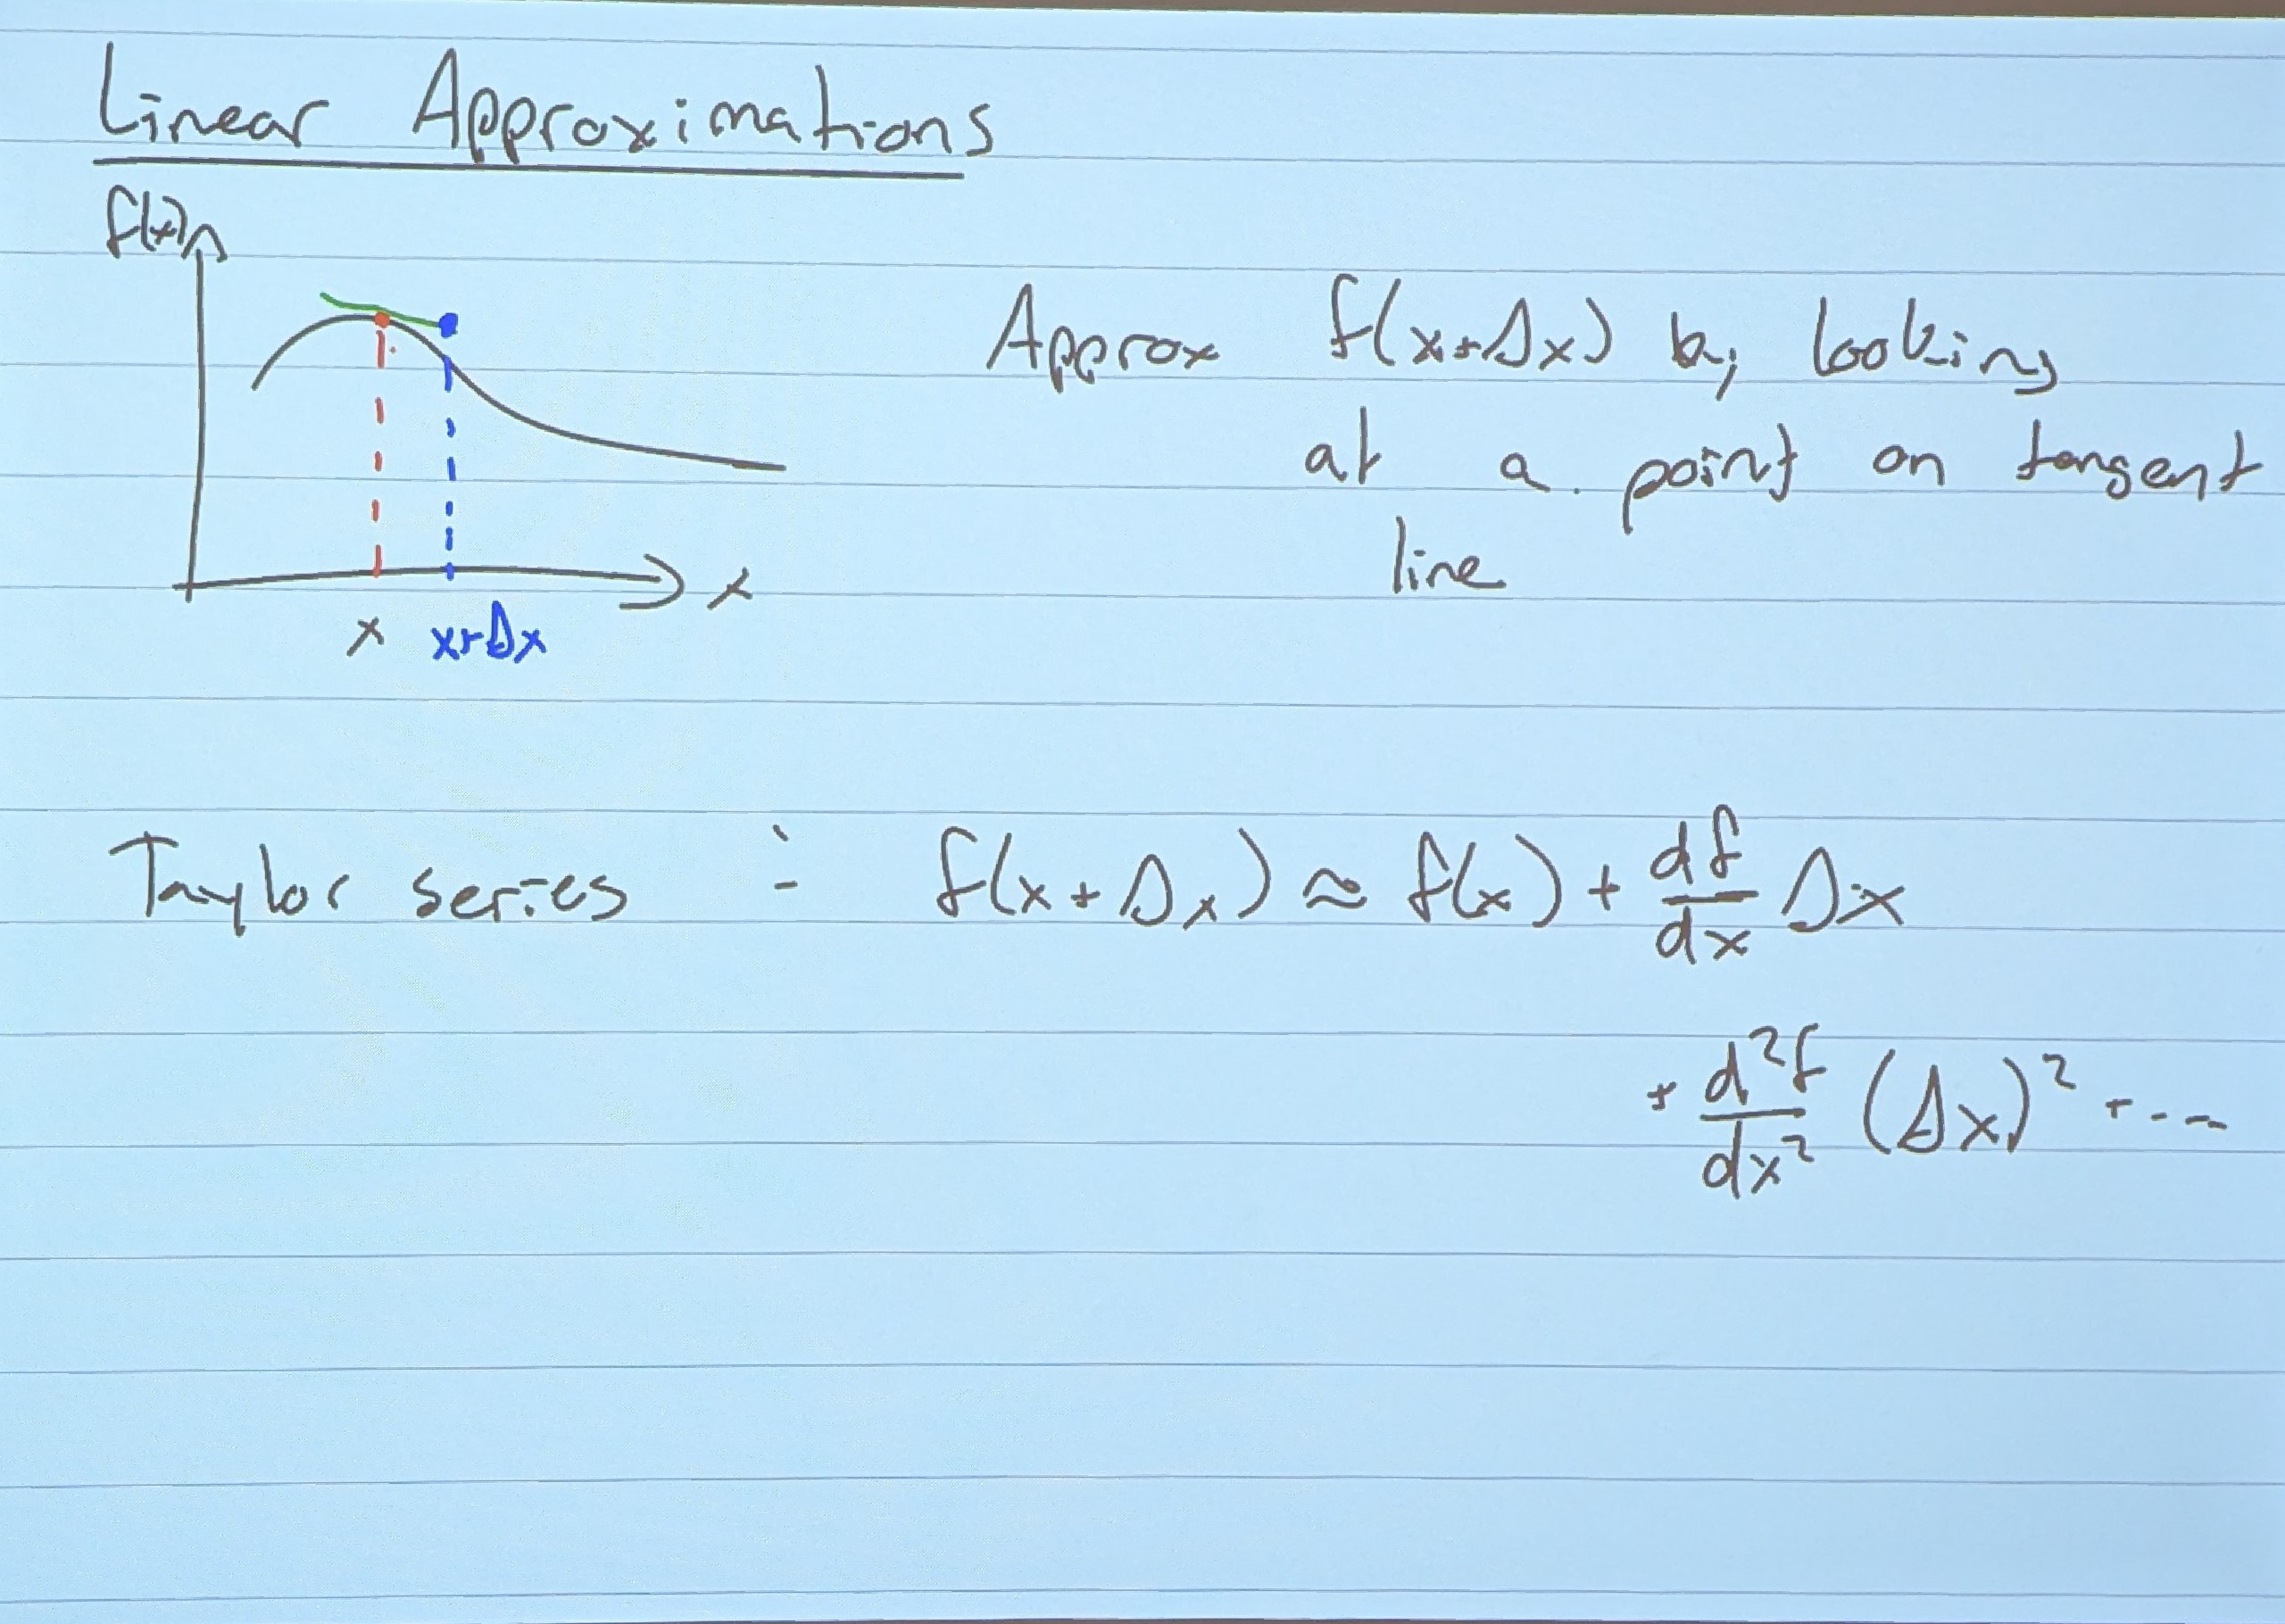 Linear Approximations
f(x)
x
x x+Δx
Approx f(x+Δx) by looking
at a point on tangent
line
Taylor series : f(x+Δx) ≈ f(x) + df/dx Δx
+ d²f/dx² (Δx)² + ...